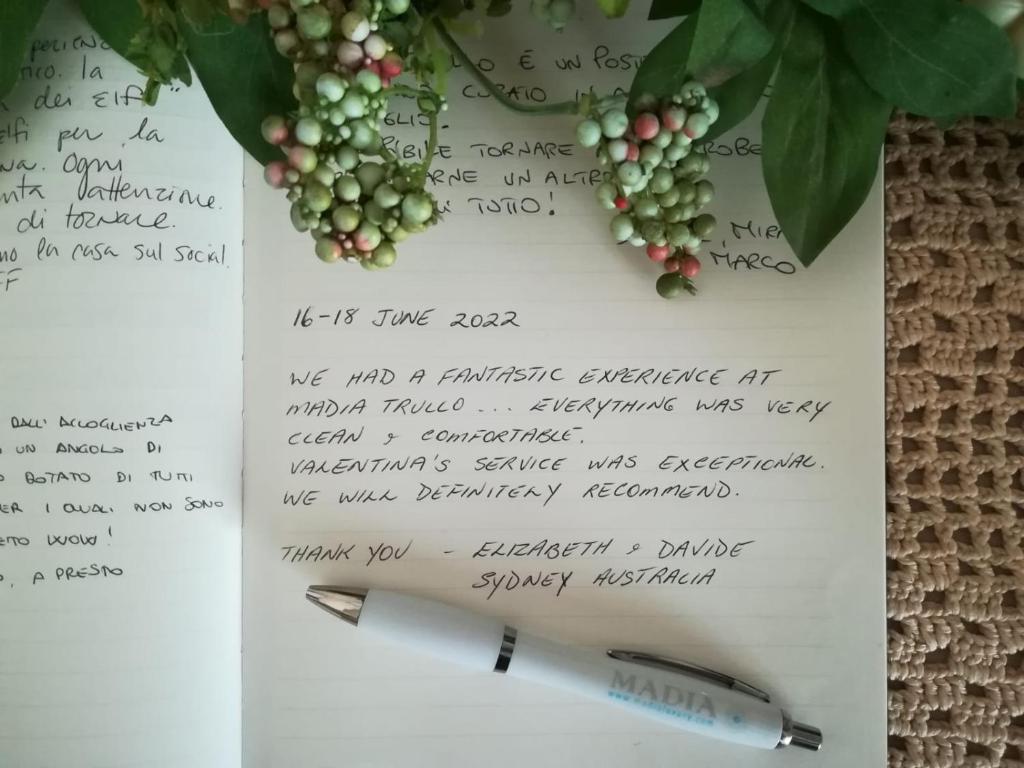 tico. la
dei Elfi"
elfi per la
Ogni
attenzione.
di tornare.
la casa sul social.
DALL' ACCOGLIENZA
UN ANGOLO DI
DOTATO DI TUTTI
PER I QUALI NON SONO
WOW!
A PRESTO
È UN
CURATO IN
TORNARE
UN ALTRO
TUTTO!
MARCO
16-18 JUNE 2022
WE HAD A FANTASTIC EXPERIENCE AT
MADIA TRULLO ... EVERYTHING WAS VERY
CLEAN & COMFORTABLE.
VALENTINA'S SERVICE WAS EXCEPTIONAL.
WE WILL DEFINITELY RECOMMEND.
THANK YOU - ELIZABETH & DAVIDE
SYDNEY AUSTRALIA
MADIA
www.madialuxury.com